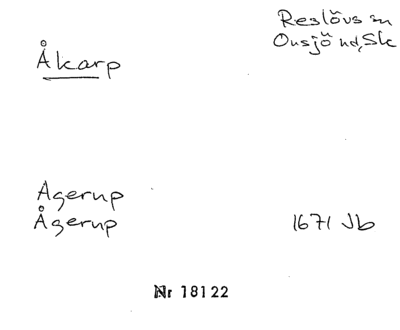 Reslövs sn
Onsjö hd, Sk
Åkarp
Agerup
Ågerup
1671 Jb
Nr 18122